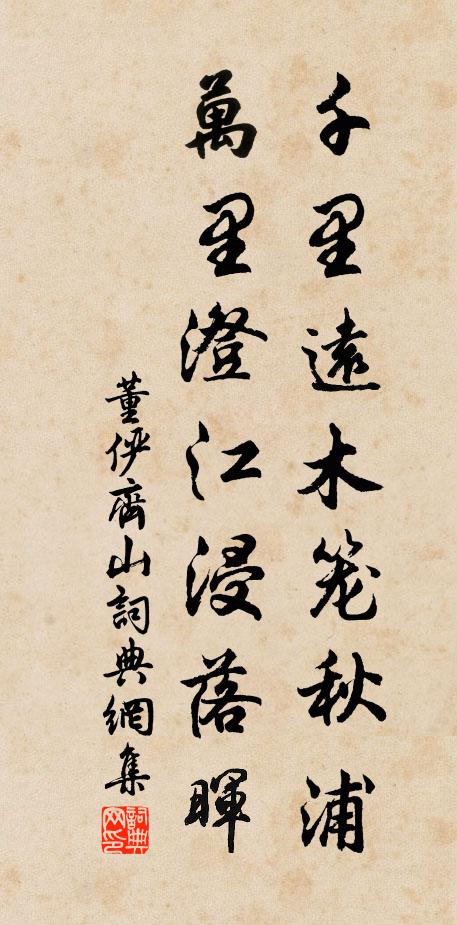 千里遠木笼秋浦
萬里澄江浸落暉
董伊齊山詞典網集
詞典网印